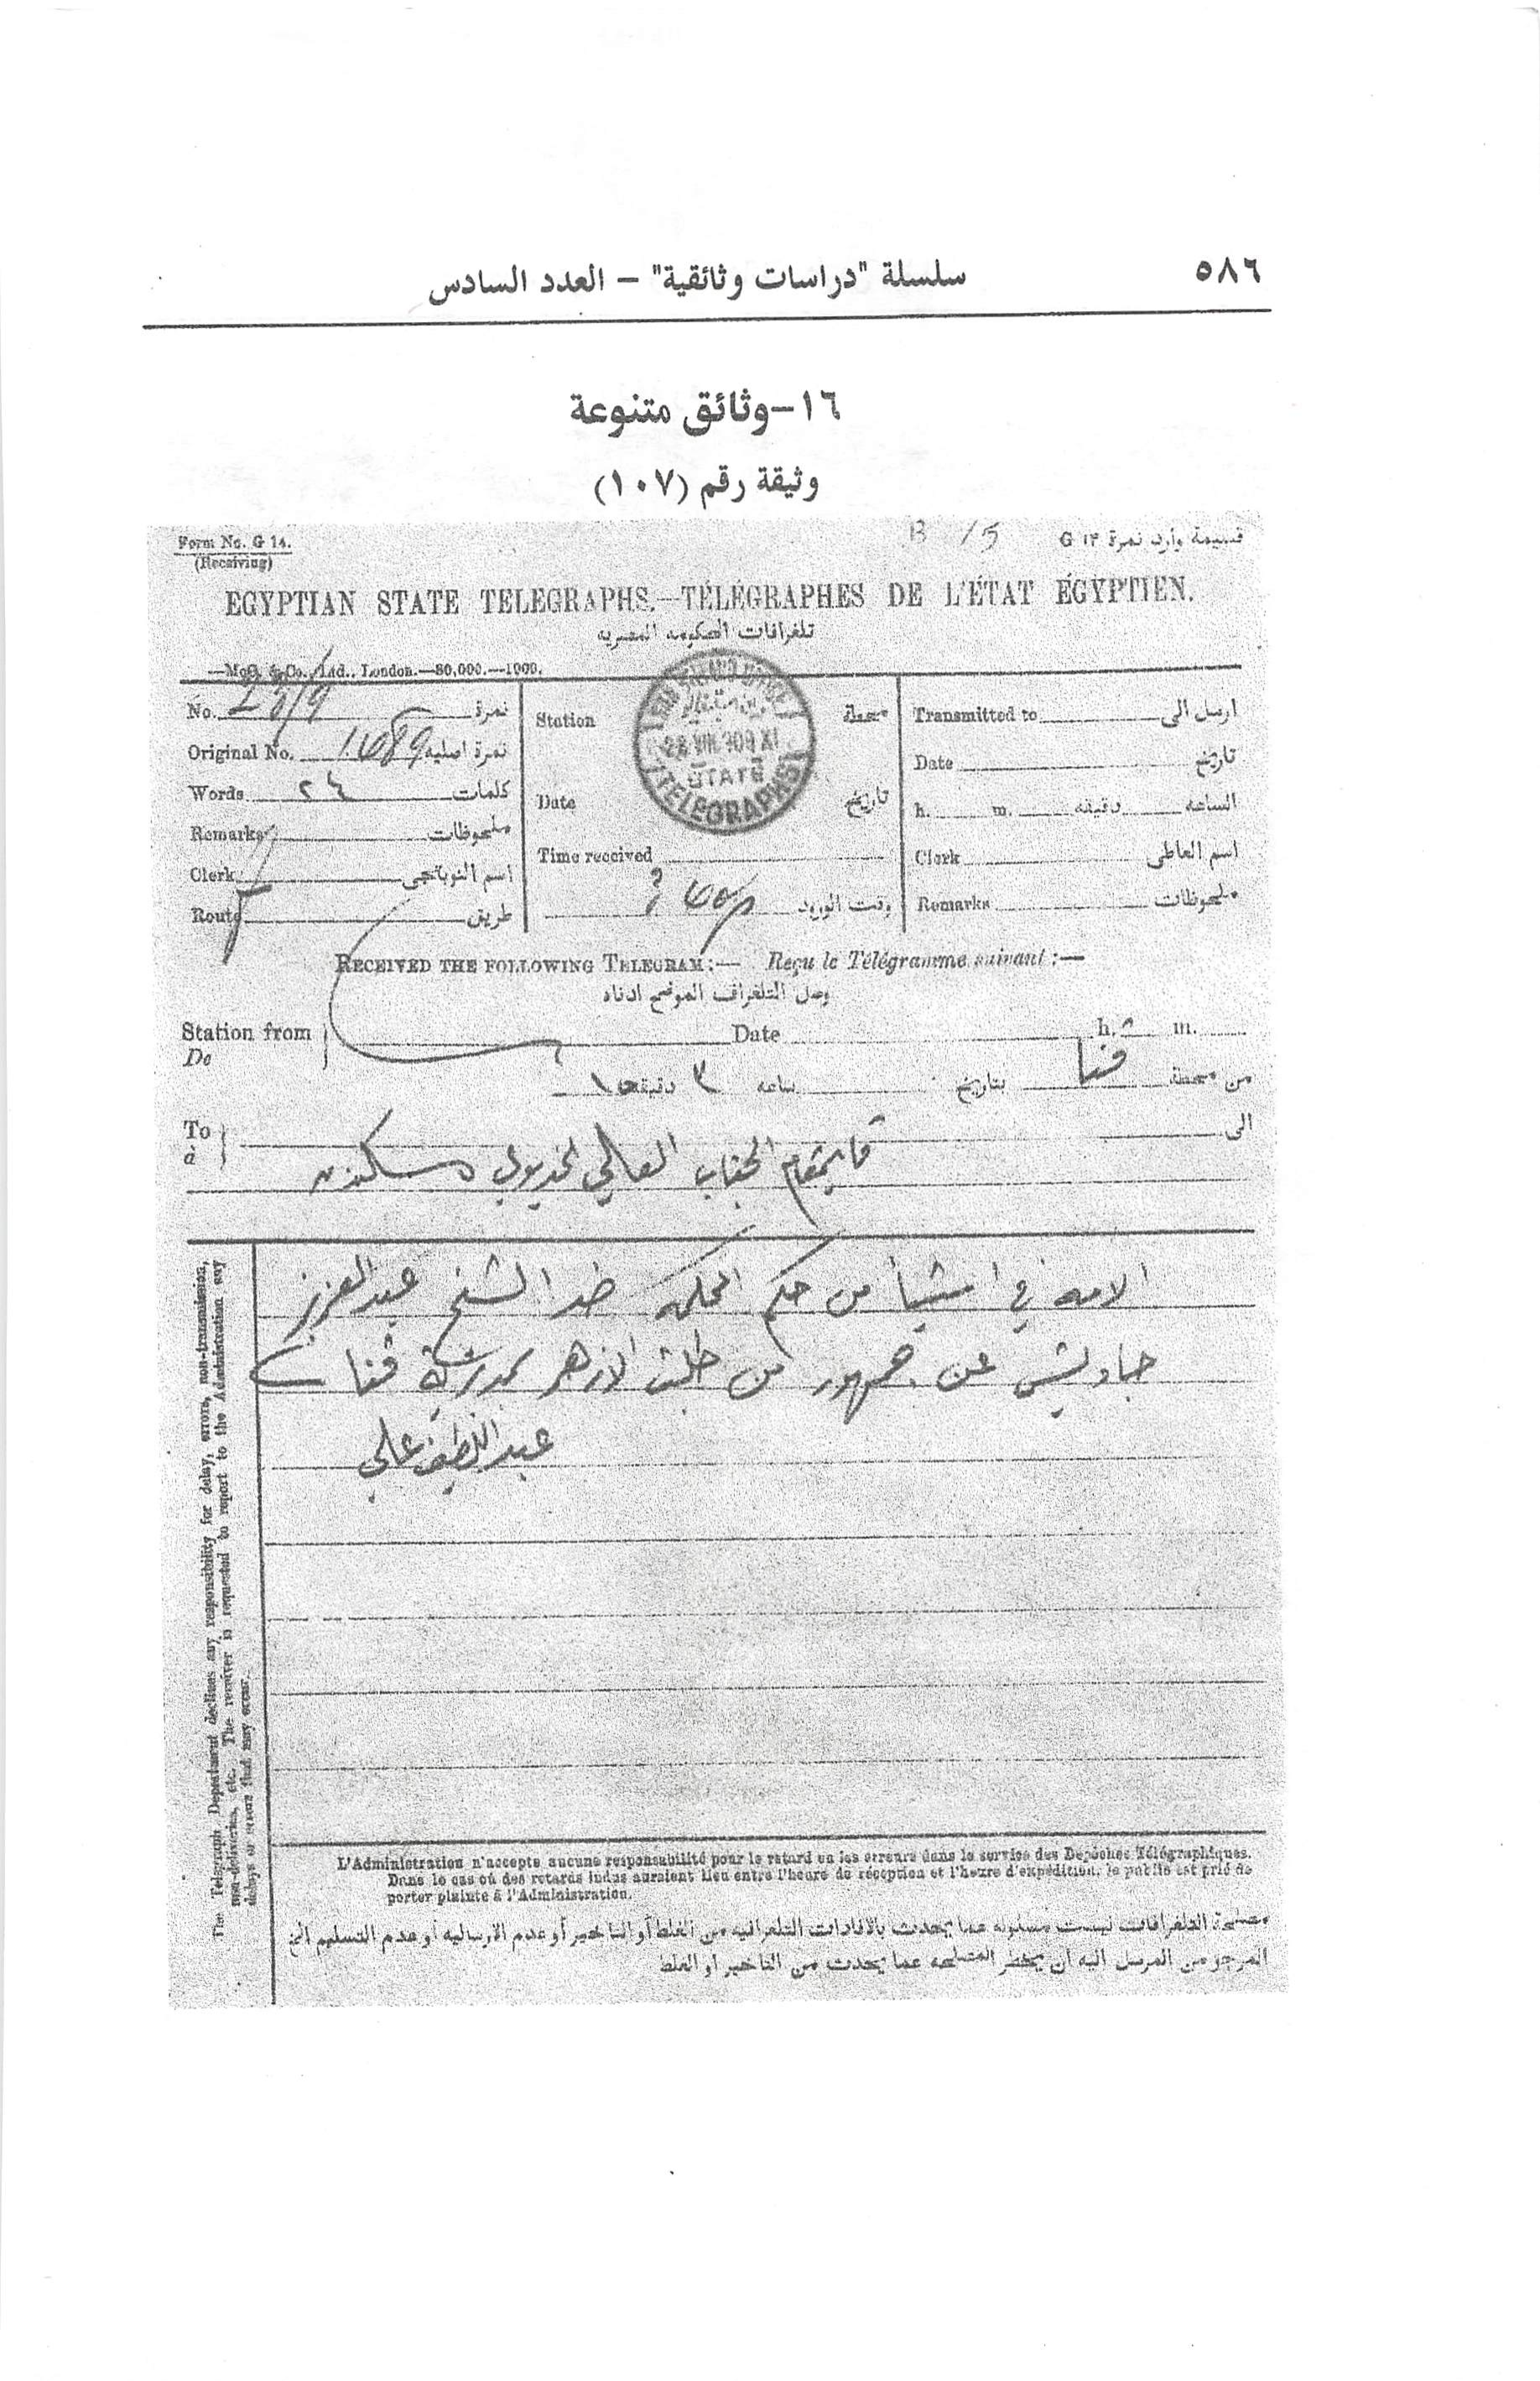 ٥٨٦
سلسلة "دراسات وثائقية" – العدد السادس
١٦-وثائق متنوعة
وثيقة رقم (١٠٧)
Form No. G 14.
(Receiving)
B 15
قسيمة وارد نمرة ١٣ G
EGYPTIAN STATE TELEGRAPHS.—TÉLÉGRAPHES DE L'ÉTAT ÉGYPTIEN.
تلغرافات الحكومه المصريه
—McC. & Co., Ltd., London.—80,000.—1909.
No. نمرة
Original No. نمرة اصليه
Words ٢٤ كلمات
Remarks ملحوظات
Clerk اسم النوبتجى
Route طريق
Station محطة
Date تاريخ
Time received
وقت الورود
STATE
TELEGRAPHS
Transmitted to ارسل الى
Date تاريخ
h. m. دقيقه الساعه
Clerk اسم العاطى
Remarks ملحوظات
RECEIVED THE FOLLOWING TELEGRAM:— Reçu le Télégramme suivant:—
وصل التلغراف الموضح ادناه
Station from Date h. m.
De
من محطة قنا بتاريخ ساعه ٣ دقيقه
To الى
a
قايمقام الجناب العالي الخديوي اسكندريه
الامه في استياء من حكم المحكمه ضد الشيخ عبد العزيز
جاويش عن جمهور من طلبة الازهر بمديرية قنا
عبد اللطيف علي
The Telegraph Department declines any responsibility for delay, errors, non-transmission,
non-deliveries, etc. The receiver is requested to report to the Administration any
delays or errors that may occur.
L'Administration n'accepte aucune responsabilité pour le retard ou les erreurs dans le service des Dépêches Télégraphiques.
Dans le cas où des retards indus auraient lieu entre l'heure de réception et l'heure d'expédition, le public est prié de
porter plainte à l'Administration.
مصلحة التلغرافات ليست مسئوله عما يحدث بالافادات التلغرافيه من الغلط أو التاخير أو عدم الارساليه أو عدم التسليم الخ
المرجو من المرسل اليه أن يخطر المصلحه عما يحدث من التاخير أو الغلط